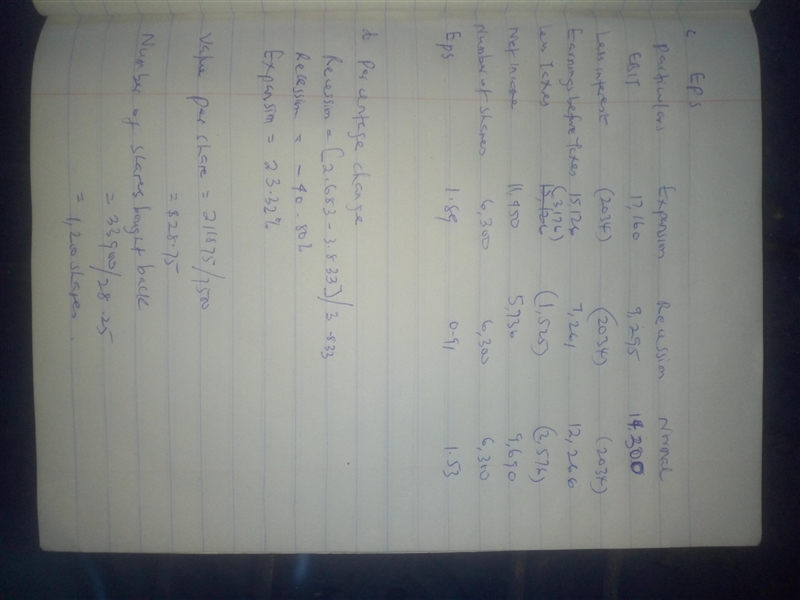 c EPS
Particulars Expansion Recession Normal
EBIT 17,160 9,295 14,300
Less interest (2034) (2034) (2034)
Earnings before Taxes 15,126 7,261 12,266
Less Taxes (3,176) (1,525) (2,576)
Net income 11,950 5,736 9,690
Number of shares 6,300 6,300 6,300
EPS 1.89 0.91 1.53
d Percentage change
Recession = (2.683 - 3.833)/3.833
Recession = -40.80%
Expansion = 23.32%
Value per share = 211875/7500
= $28.25
Number of shares bought back
= 33900/28.25
= 1,200 shares.